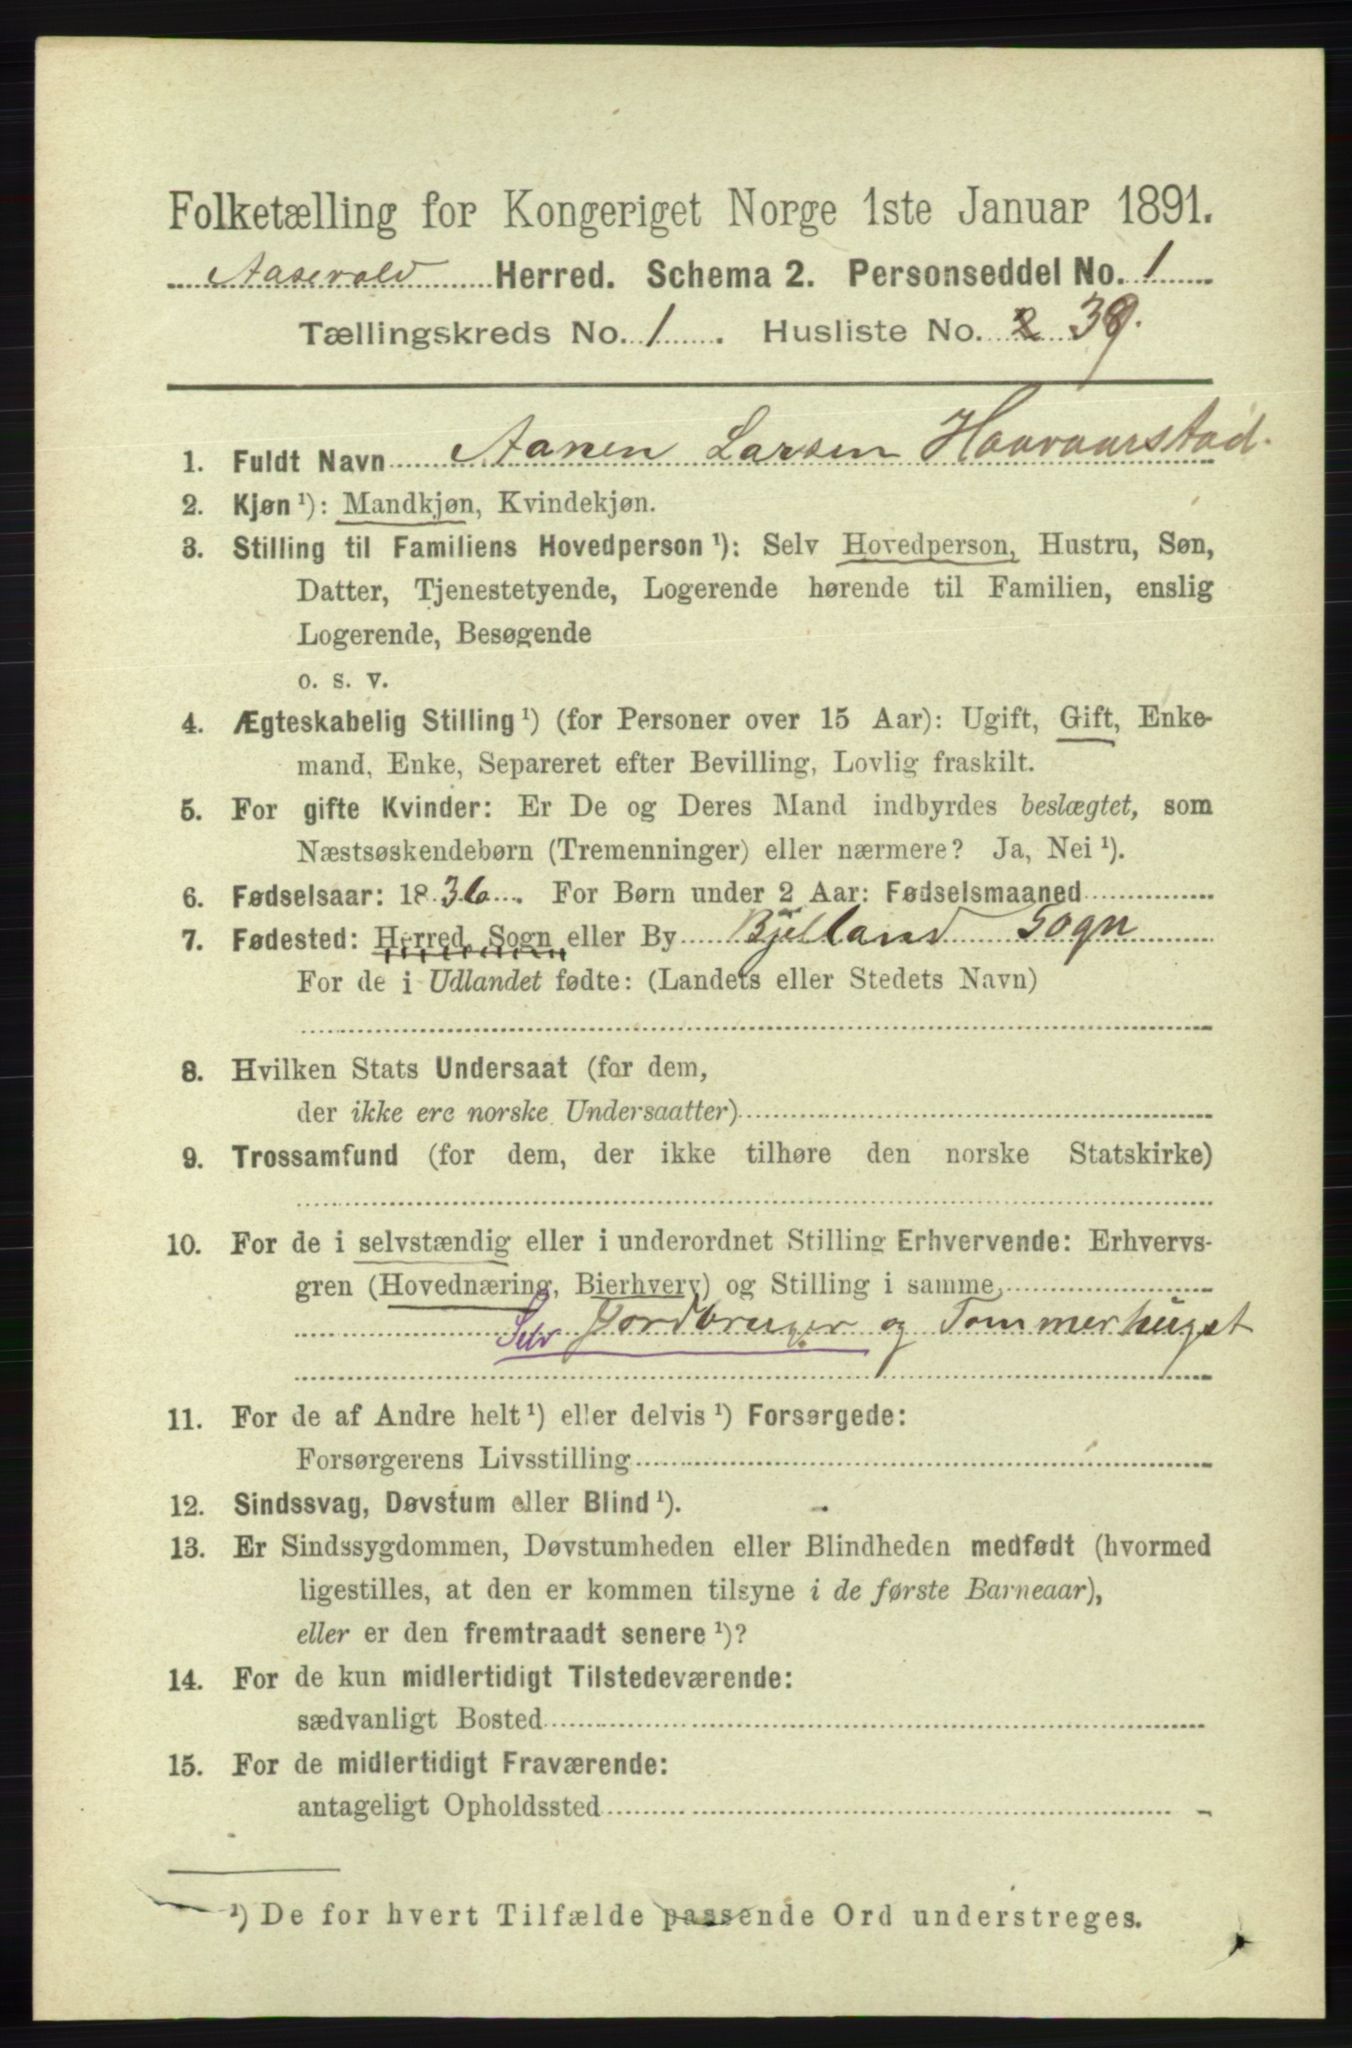 Folketælling for Kongeriget Norge 1ste Januar 1891.
Aaserald Herred. Schema 2. Personseddel No. 1
Tællingskreds No. 1. Husliste No. 2 39.
1. Fuldt Navn Aanen Larsen Haavaarstad.
2. Kjøn ¹): Mandkjøn, Kvindekjøn.
3. Stilling til Familiens Hovedperson ¹): Selv Hovedperson, Hustru, Søn,
Datter, Tjenestetyende, Logerende hørende til Familien, enslig
Logerende, Besøgende
o. s. v.
4. Ægteskabelig Stilling ¹) (for Personer over 15 Aar): Ugift, Gift, Enke-
mand, Enke, Separeret efter Bevilling, Lovlig fraskilt.
5. For gifte Kvinder: Er De og Deres Mand indbyrdes beslægtet, som
Næstsøskendebørn (Tremenninger) eller nærmere? Ja, Nei ¹).
6. Fødselsaar: 1836. For Børn under 2 Aar: Fødselsmaaned
7. Fødested: Herred, Sogn eller By Bjelland Sogn
For de i Udlandet fødte: (Landets eller Stedets Navn)
8. Hvilken Stats Undersaat (for dem,
der ikke ere norske Undersaatter)
9. Trossamfund (for dem, der ikke tilhøre den norske Statskirke)
10. For de i selvstændig eller i underordnet Stilling Erhvervende: Erhvervs-
gren (Hovednæring, Bierhverv) og Stilling i samme
Selv Jordbruger og Tømmerhugst
11. For de af Andre helt ¹) eller delvis ¹) Forsørgede:
Forsørgerens Livsstilling
12. Sindssvag, Døvstum eller Blind ¹).
13. Er Sindssygdommen, Døvstumheden eller Blindheden medfødt (hvormed
ligestilles, at den er kommen tilsyne i de første Barneaar),
eller er den fremtraadt senere ¹)?
14. For de kun midlertidigt Tilstedeværende:
sædvanligt Bosted
15. For de midlertidigt Fraværende:
antageligt Opholdssted
¹) De for hvert Tilfælde passende Ord understreges.